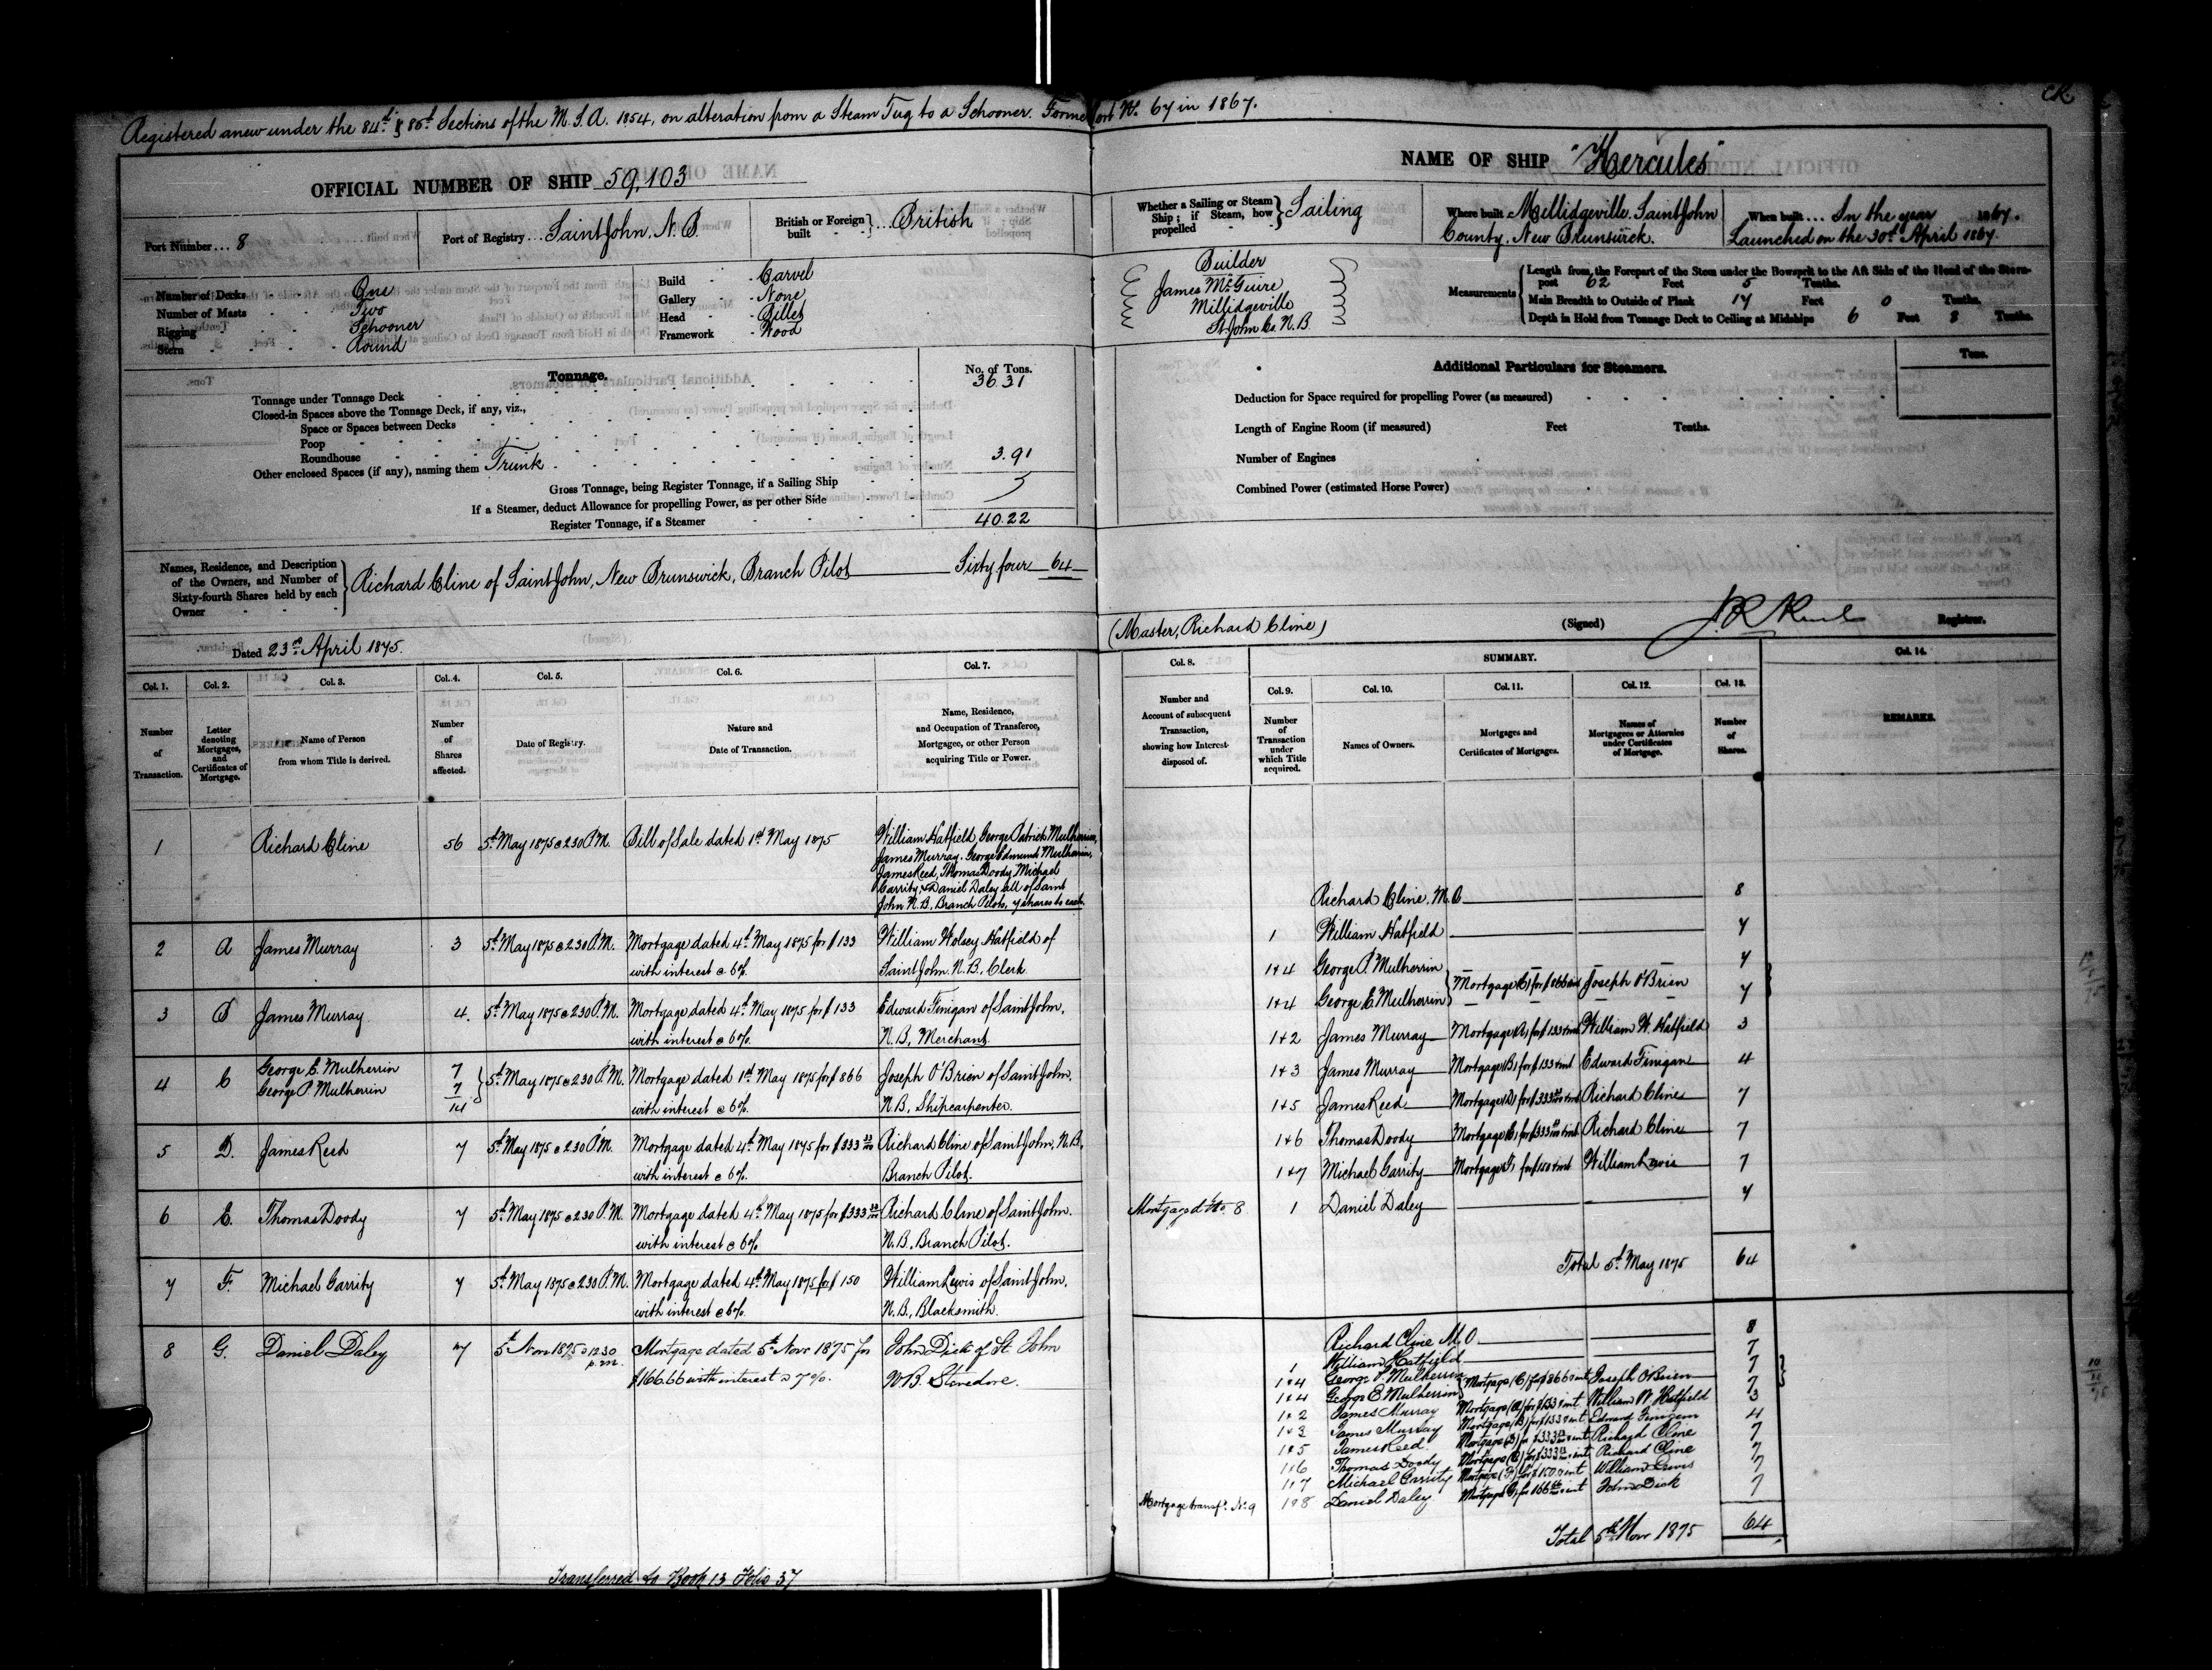 Registered anew under the 84th & 85th Sections of the M.S.A. 1854, on alteration from a Steam Tug to a Schooner. No. 67 in 1867.
OFFICIAL NUMBER OF SHIP 59,103
Port Number... 8
Port of Registry... Saint John, N.B.
British or Foreign built } ... British
Number of Decks One
Number of Masts Two
Rigging Schooner
Stern Round
Build Carvel
Gallery None
Head Billet
Framework Wood
Tonnage. No. of Tons.
Tonnage under Tonnage Deck 36.31
Closed-in Spaces above the Tonnage Deck, if any, viz.,
Space or Spaces between Decks
Poop
Roundhouse
Other enclosed Spaces (if any), naming them Trunk 3.91
Gross Tonnage, being Register Tonnage, if a Sailing Ship
If a Steamer, deduct Allowance for propelling Power, as per other Side
Register Tonnage, if a Steamer 40.22
Names, Residence, and Description
of the Owners, and Number of
Sixty-fourth Shares held by each
Owner
Richard Cline of Saint John, New Brunswick, Branch Pilot Sixty four 64
Dated 23rd April 1875.
Col. 1. Col. 2. Col. 3. Col. 4. Col. 5. Col. 6. Col. 7.
Number of Transaction.
Letter denoting Mortgages, and Certificates of Mortgage.
Name of Person from whom Title is derived.
Number of Shares affected.
Date of Registry.
Nature and Date of Transaction.
Name, Residence, and Occupation of Transferee, Mortgagee, or other Person acquiring Title or Power.
1 Richard Cline 56 5th May 1875 @ 2.30 P.M. Bill of Sale dated 1st May 1875 William Hatfield, George Patrick Mulherrin,
James Murray, George Edmund Mulherrin,
James Reed, Thomas Doody, Michael
Garrity, & Daniel Daley all of Saint
John N.B., Branch Pilots, 7 shares to each
2 A James Murray 3 5th May 1875 @ 2.30 P.M. Mortgage dated 4th May 1875 for $133 William Wolsey Hatfield of
with interest @ 6%. Saint John. N.B., Clerk
3 B James Murray 4. 5th May 1875 @ 2.30 P.M. Mortgage dated 4th May 1875 for $133 Edward Finigan of Saint John,
with interest @ 6%. N.B, Merchant
4 C George E. Mulherrin 7 5th May 1875 @ 2.30 P.M. Mortgage dated 1st May 1875 for $866 Joseph O'Brien of Saint John,
George P. Mulherrin 7 14 with interest @ 6%. N.B, Shipcarpenter.
5 D. James Reed 7 5th May 1875 @ 2.30 P.M. Mortgage dated 4th May 1875 for $333 33/100 Richard Cline of Saint John, N.B,
with interest @ 6%. Branch Pilot.
6 E. Thomas Doody 7 5th May 1875 @ 2.30 P.M. Mortgage dated 4th May 1875 for $333 33/100 Richard Cline of Saint John.
with interest @ 6% N.B, Branch Pilot.
7 F. Michael Garrity 7 5th May 1875 @ 2.30 P.M. Mortgage dated 4th May 1875 for $150 William Lewis of Saint John,
with interest @ 6%. N.B, Blacksmith.
8 G. Daniel Daley 7 5th Nov 1875 @ 12.30 p.m. Mortgage dated 5th Novr 1875 for John Dick of St. John
$166.66 with interest @ 7%. N.B. Stevedore.
Transferred to Book 13 Folio 37
CR.
NAME OF SHIP "Hercules"
Whether a Sailing or Steam Ship; if Steam, how propelled } Sailing
Where built Millidgeville. Saint John
County, New Brunswick.
When built... In the year 1867.
Launched on the 30th April 1867.
Builder
James McGuire
Millidgeville
St. John Co. N.B.
Measurements
Length from the Forepart of the Stem under the Bowsprit to the Aft Side of the Head of the Stern-
post 62 Feet 5 Tenths.
Main Breadth to Outside of Plank 17 Feet 0 Tenths.
Depth in Hold from Tonnage Deck to Ceiling at Midships 6 Feet 8 Tenths.
Additional Particulars for Steamers. Tons.
Deduction for Space required for propelling Power (as measured)
Length of Engine Room (if measured) Feet Tenths.
Number of Engines
Combined Power (estimated Horse Power)
(Master, Richard Cline) (Signed) Registrar.
Col. 8. SUMMARY. Col. 14.
Col. 9. Col. 10. Col. 11. Col. 12. Col. 13.
Number and Account of subsequent Transaction, showing how Interest disposed of.
Number of Transaction under which Title acquired.
Names of Owners.
Mortgages and Certificates of Mortgages.
Names of Mortgagees or Attornies under Certificates of Mortgage.
Number of Shares.
REMARKS.
Richard Cline, M.O. 8
1 William Hatfield 7
1&4 George P. Mulherrin 7
1&4 George E. Mulherrin Mortgage (C) for $866 & int Joseph O'Brien 7
1&2 James Murray Mortgage (A) for $133 & int William W. Hatfield 3
1&3 James Murray Mortgage (B) for $133 & int Edward Finigan 4
1&5 James Reed Mortgage (D) for $333 33/100 & int Richard Cline 7
1&6 Thomas Doody Mortgage (E) for $333 33/100 & int Richard Cline 7
1&7 Michael Garrity Mortgage (F) for $150 & int William Lewis 7
Mortgaged No 8 1 Daniel Daley 7
Total 5th May 1875 64
Richard Cline M.O 8
1 William Hatfield 7
1&4 George P. Mulherrin 7
1&4 George E Mulherrin Mortgage (C) for $866 & int Joseph O'Brien 7
1&2 James Murray Mortgage (A) for $133 & int William W Hatfield 3
1&3 James Murray Mortgage (B) for $133 & int Edward Finigan 4
1&5 James Reed. Mortgage (D) for $333 33/100 & int Richard Cline 7
1&6 Thomas Doody Mortgage (E) for $333 33/100 & int Richard Cline 7
1&7 Michael Garrity Mortgage (F) for $150 & int William Lewis 7
Mortgage transfd. No. 9 1&8 Daniel Daley Mortgage G, for 166 66/100 & int John Dick 7
Total 5th Novr 1875 64